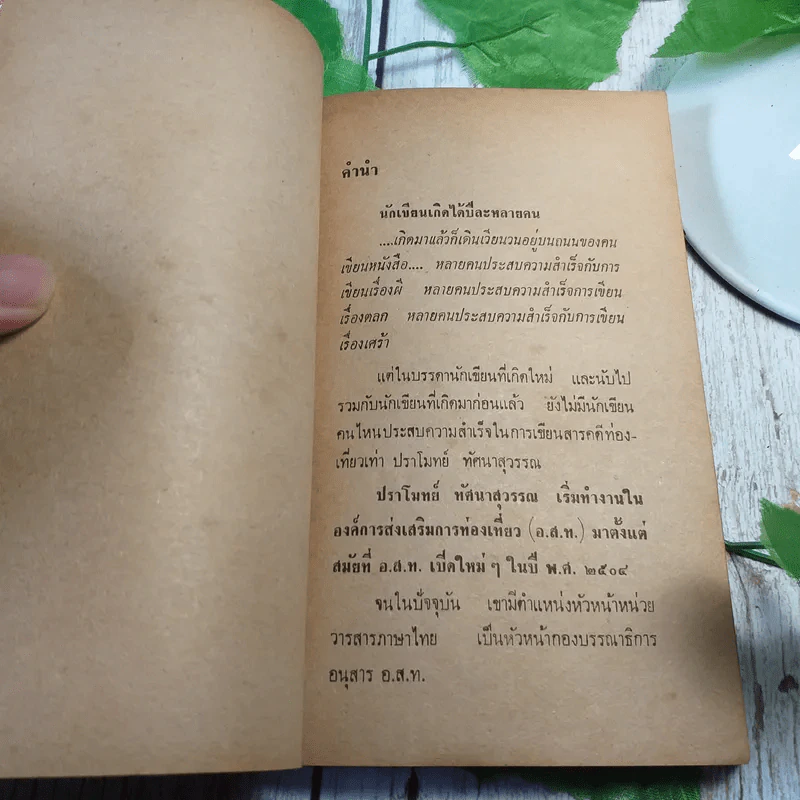 คำนำ
นักเขียนเกิดได้ปีละหลายคน
....เกิดมาแล้วก็เดินเวียนวนอยู่บนถนนของคน
เขียนหนังสือ.... หลายคนประสบความสำเร็จกับการ
เขียนเรื่องผี หลายคนประสบความสำเร็จการเขียน
เรื่องตลก หลายคนประสบความสำเร็จกับการเขียน
เรื่องเศร้า
แต่ในบรรดานักเขียนที่เกิดใหม่ และนับไป
รวมกับนักเขียนที่เกิดมาก่อนแล้ว ยังไม่มีนักเขียน
คนไหนประสบความสำเร็จในการเขียนสารคดีท่อง-
เที่ยวเท่า ปราโมทย์ ทัศนาสุวรรณ
ปราโมทย์ ทัศนาสุวรรณ เริ่มทำงานใน
องค์การส่งเสริมการท่องเที่ยว (อ.ส.ท.) มาตั้งแต่
สมัยที่ อ.ส.ท. เปิดใหม่ ๆ ในปี พ.ศ. ๒๕๐๔
จนในปัจจุบัน เขามีตำแหน่งหัวหน้าหน่วย
วารสารภาษาไทย เป็นหัวหน้ากองบรรณาธิการ
อนุสาร อ.ส.ท.